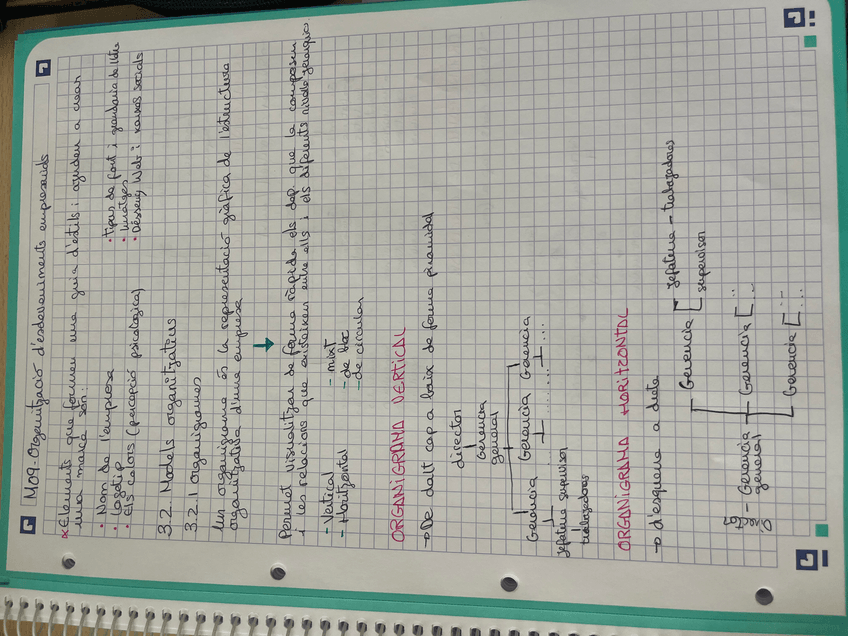 M09-Organització d'esdeveniments empresarials
* Elements que formen una guia d'estils i ajuden a crear
una marca són:
• Nom de l'empresa
• Logotip
• Els colors (percepció psicològica)
• Tipus de font i grandària de lletra
• Imatges
• Disseny Web i xarxes socials
3.2. Models organitzatius
3.2.1 Organigrames
Un organigrama és la representació gràfica de l'estructura
organitzativa d'una empresa
Permet visualitzar de forma ràpida els dep que la composen
i les relacions que existeixen entre ells i els diferents nivells jeràrquics
- Vertical
- Horitzontal
- mixt
- de bloc
- de circular
ORGANIGRAMA VERTICAL
→ De dalt cap a baix de forma piramidal
director
Gerencia
general
Gerencia Gerencia Gerencia
... ...
Jefatura supervisor
trabajadores
ORGANIGRAMA HORITZONTAL
→ d'esquerra a dreta
- Gerencia
general
Gerencia
Jefatura - trabajadores
supervisor
Gerencia ...
Gerencia ...